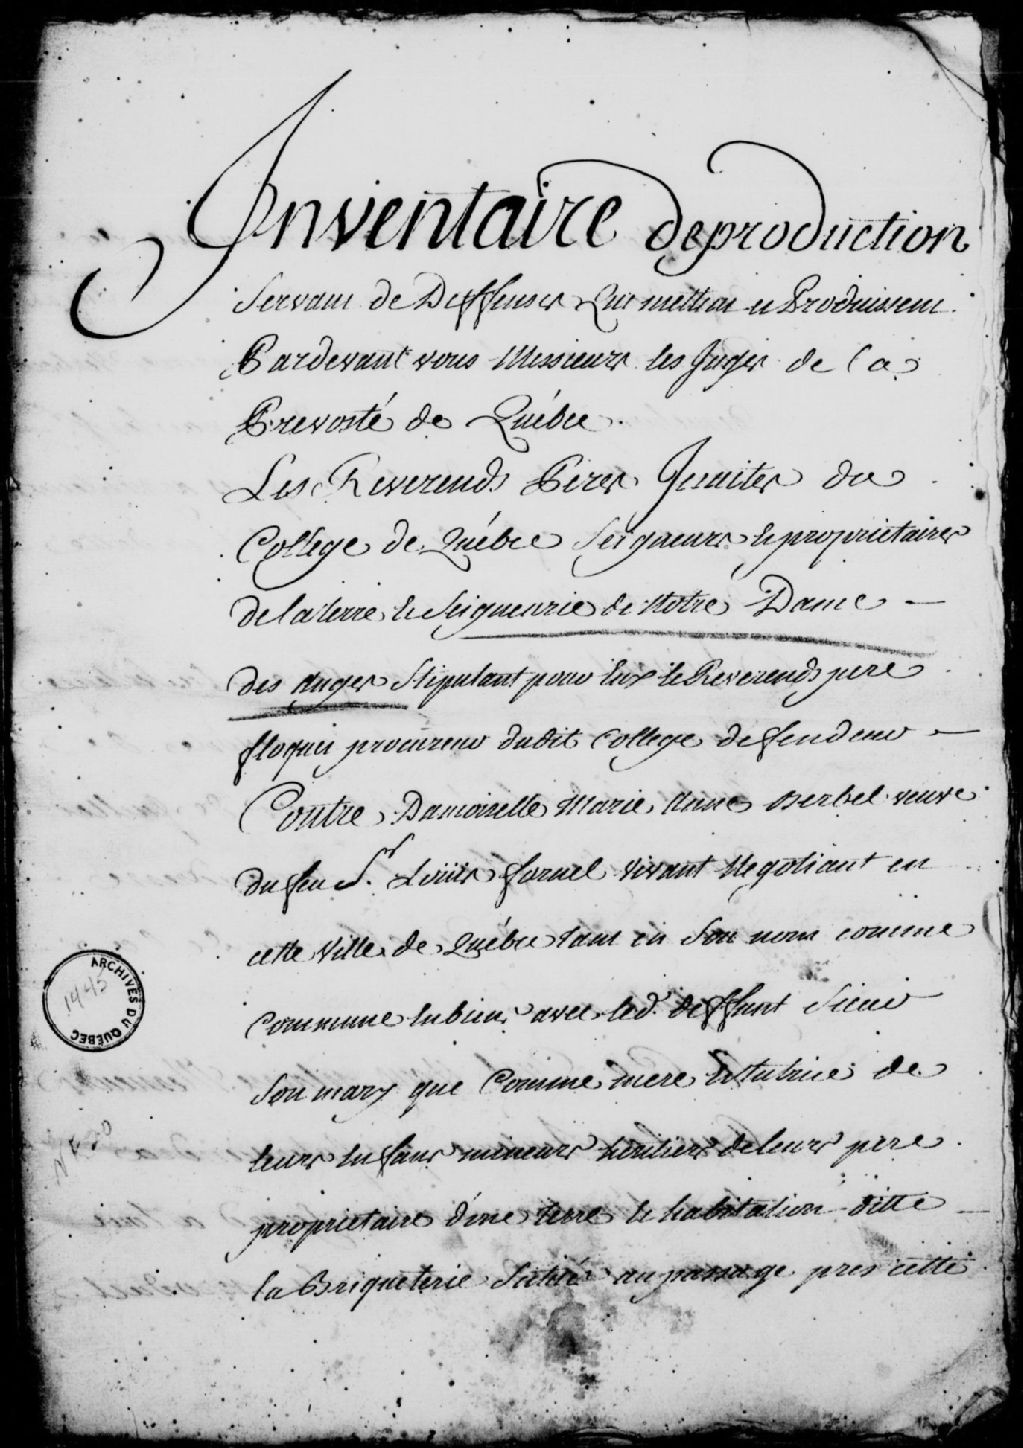 Inventaire de production
Servant de Deffenses Que mettent et Produissent
Pardevant vous Messieurs les Juges de la
Prevosté de Québec.
Les Reverends Peres Jesuites du
College de Québec Seigneurs et proprietaires
de la terre et Seigneurie de Notre Dame
des Anges Stipulant pour Eux le Reverends pere
floquet procureur dudit College deffendeur
Contre Damoiselle Marie Anne Berbel veuve
du feu Sr. Loüis fornel vivant Negotiant en
cette Ville de Québec tant en Son nom comme
Commune En biens avec led. deffunt Sieur
Son mary que Comme mere Et tutrice de
leurs Enfans mineurs heritiers de leur pere
proprietaire d'une terre et habitation ditte
la Briqueterie Scituée au passage pres cette
ARCHIVES DU QUÉBEC
1445